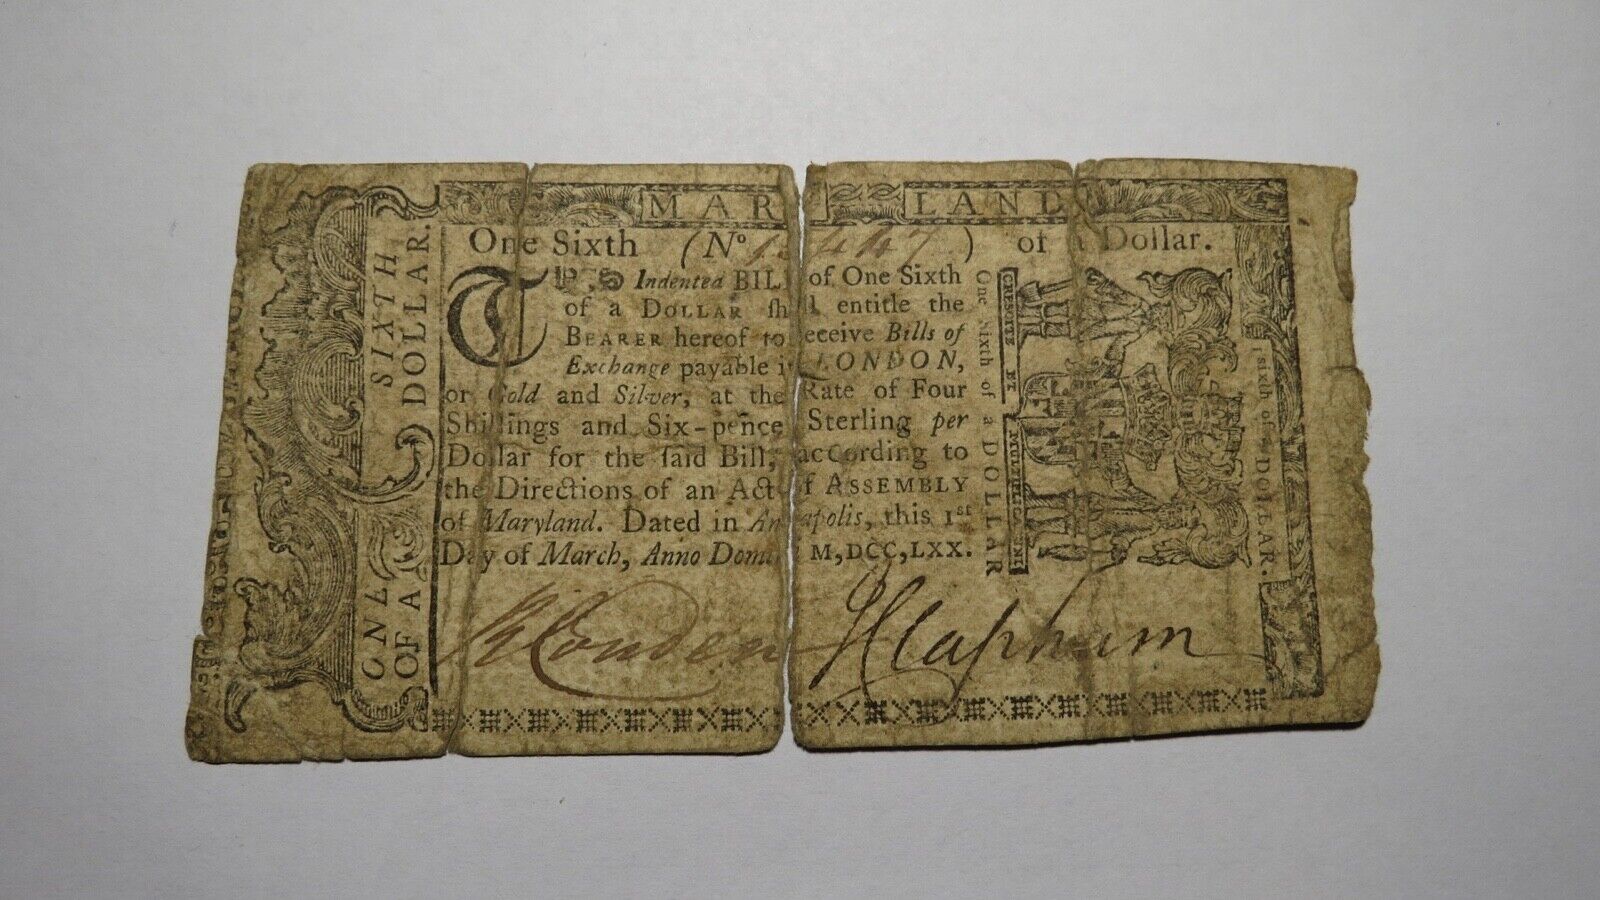 MAR LAND
One Sixth (No 447) of a Dollar.
THIS Indented BILL of One Sixth
of a DOLLAR ſhall entitle the
BEARER hereof to receive Bills of
Exchange payable in LONDON,
or Gold and Silver, at the Rate of Four
Shillings and Six-pence Sterling per
Dollar for the ſaid Bill, according to
the Directions of an Act of ASSEMBLY
of Maryland. Dated in Annapolis, this 1st
Day of March, Anno Domini M,DCC,LXX.
Couden
J Clapham
ONE SIXTH
OF A DOLLAR.
One Sixth of a DOLLAR
CRESCITE ET MULTIPLICAMINI
1 sixth of a DOLLAR.